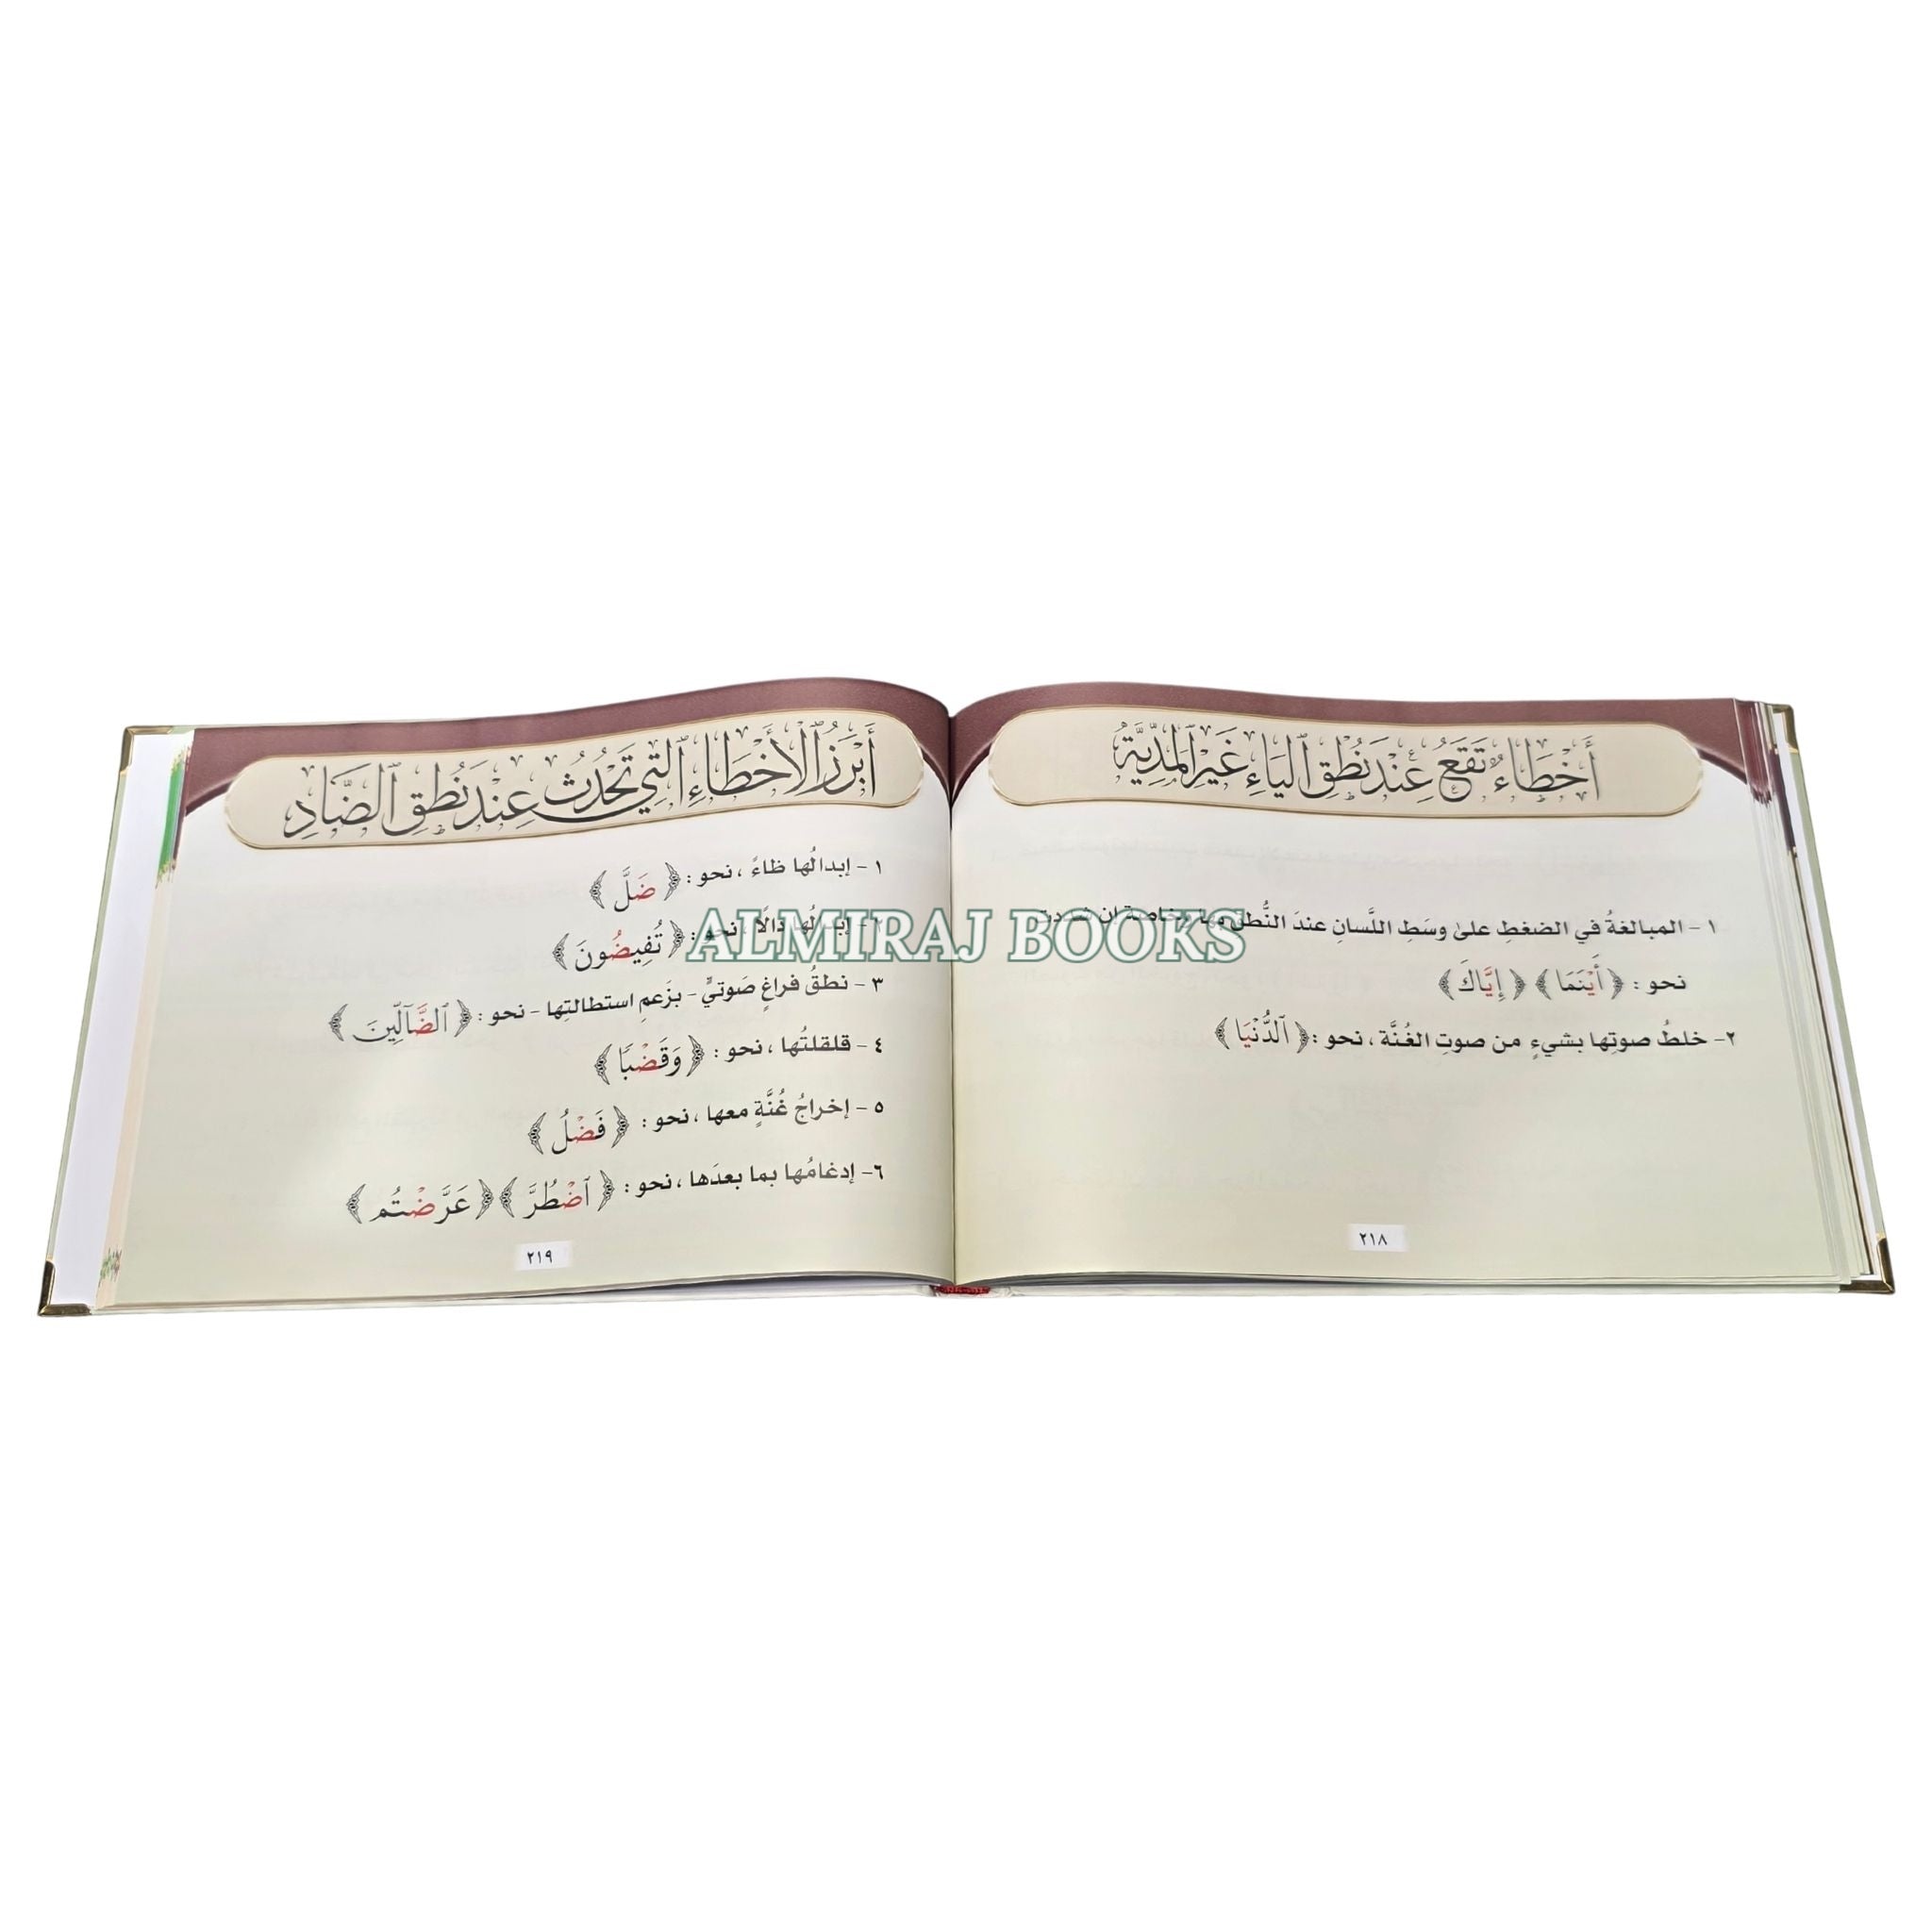 أَخْطَاءٌ تَقَعُ عِنْدَ نُطْقِ ٱليَاءِ غَيْرِ ٱلمَدِّيَّةِ
١ - المبالغةُ في الضغطِ علىٰ وسَطِ اللَّسانِ عندَ النُّطق بها
نحو : ﴿أَيْنَمَا﴾ ﴿إِيَّاكَ﴾
٢- خلطُ صوتِها بشيءٍ من صوتِ الغُنَّة ، نحو : ﴿ٱلدُّنْيَا﴾
٢١٨
أَبْرَزُ ٱلْأَخْطَاءِ ٱلتِي تَحْدُثُ عِنْدَ نُطْقِ ٱلضَّادِ
١ - إبدالُها ظاءً ، نحو : ﴿ضَلَّ﴾
٢ - إبدالُها دالًا ، نحو : ﴿تُفِيضُونَ﴾
٣ - نطقُ فراغٍ صَوتيٍّ - بزَعمِ استطالتِها - نحو : ﴿ٱلضَّآلِّينَ﴾
٤ - قلقلتُها ، نحو : ﴿وَقَضْبًا﴾
٥ - إخراجُ غُنَّةٍ معها ، نحو : ﴿فَضْلُ﴾
٦- إدغامُها بما بعدَها ، نحو : ﴿ٱضْطُرَّ﴾ ﴿عَرَّضْتُم﴾
٢١٩
ALMIRAJ BOOKS